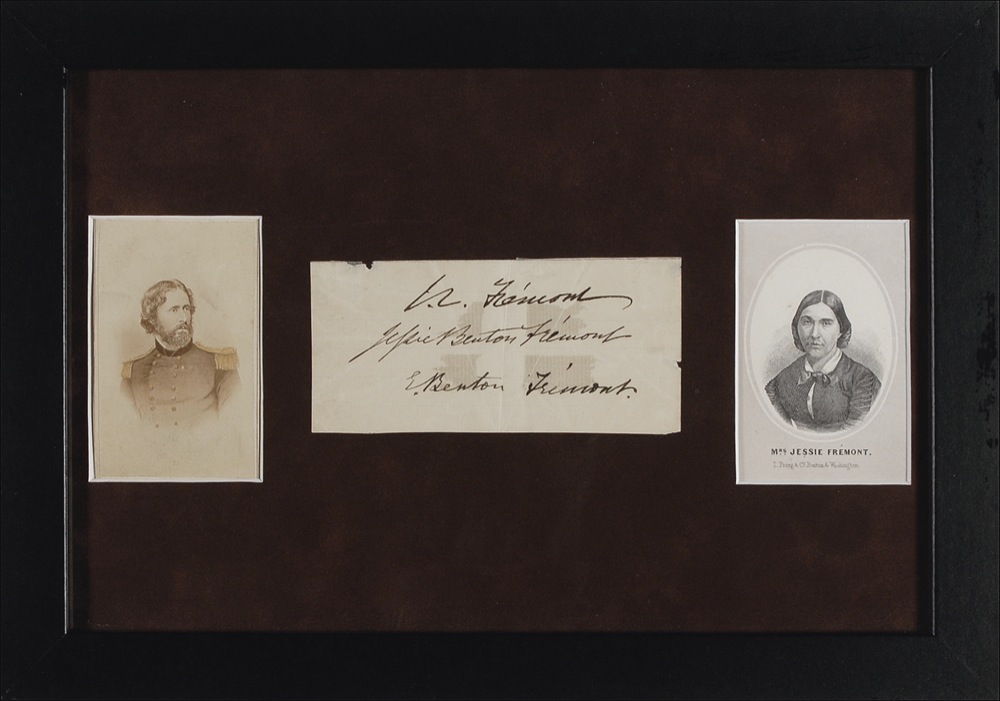 J. C. Frémont
Jessie Benton Frémont
E. Benton Frémont.
MRS JESSIE FRÉMONT.
L. Prang & Co. Boston & Washington